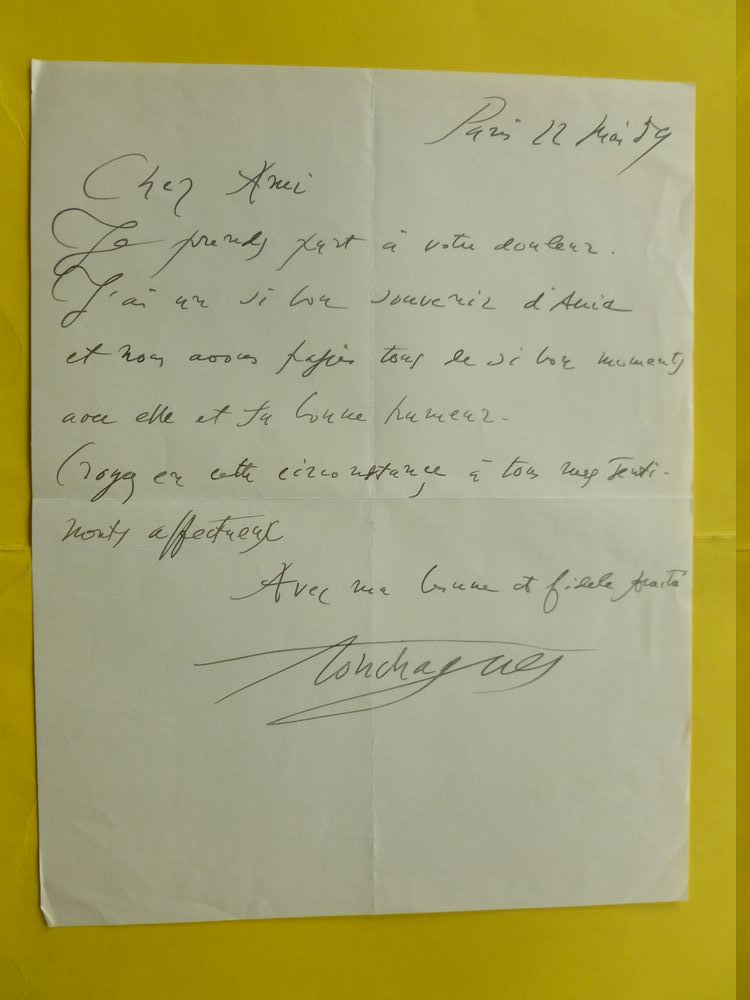 Paris 22 Mai 59
Cher Ami
Je prends part à votre douleur.
J'ai un si bon souvenir d'Ania
et nous avons passés tous de si bon moments
avec elle et sa bonne humeur.
Croyez en cette circonstance à tous mes senti-
ments affectueux
Avec ma bonne et fidele amitié